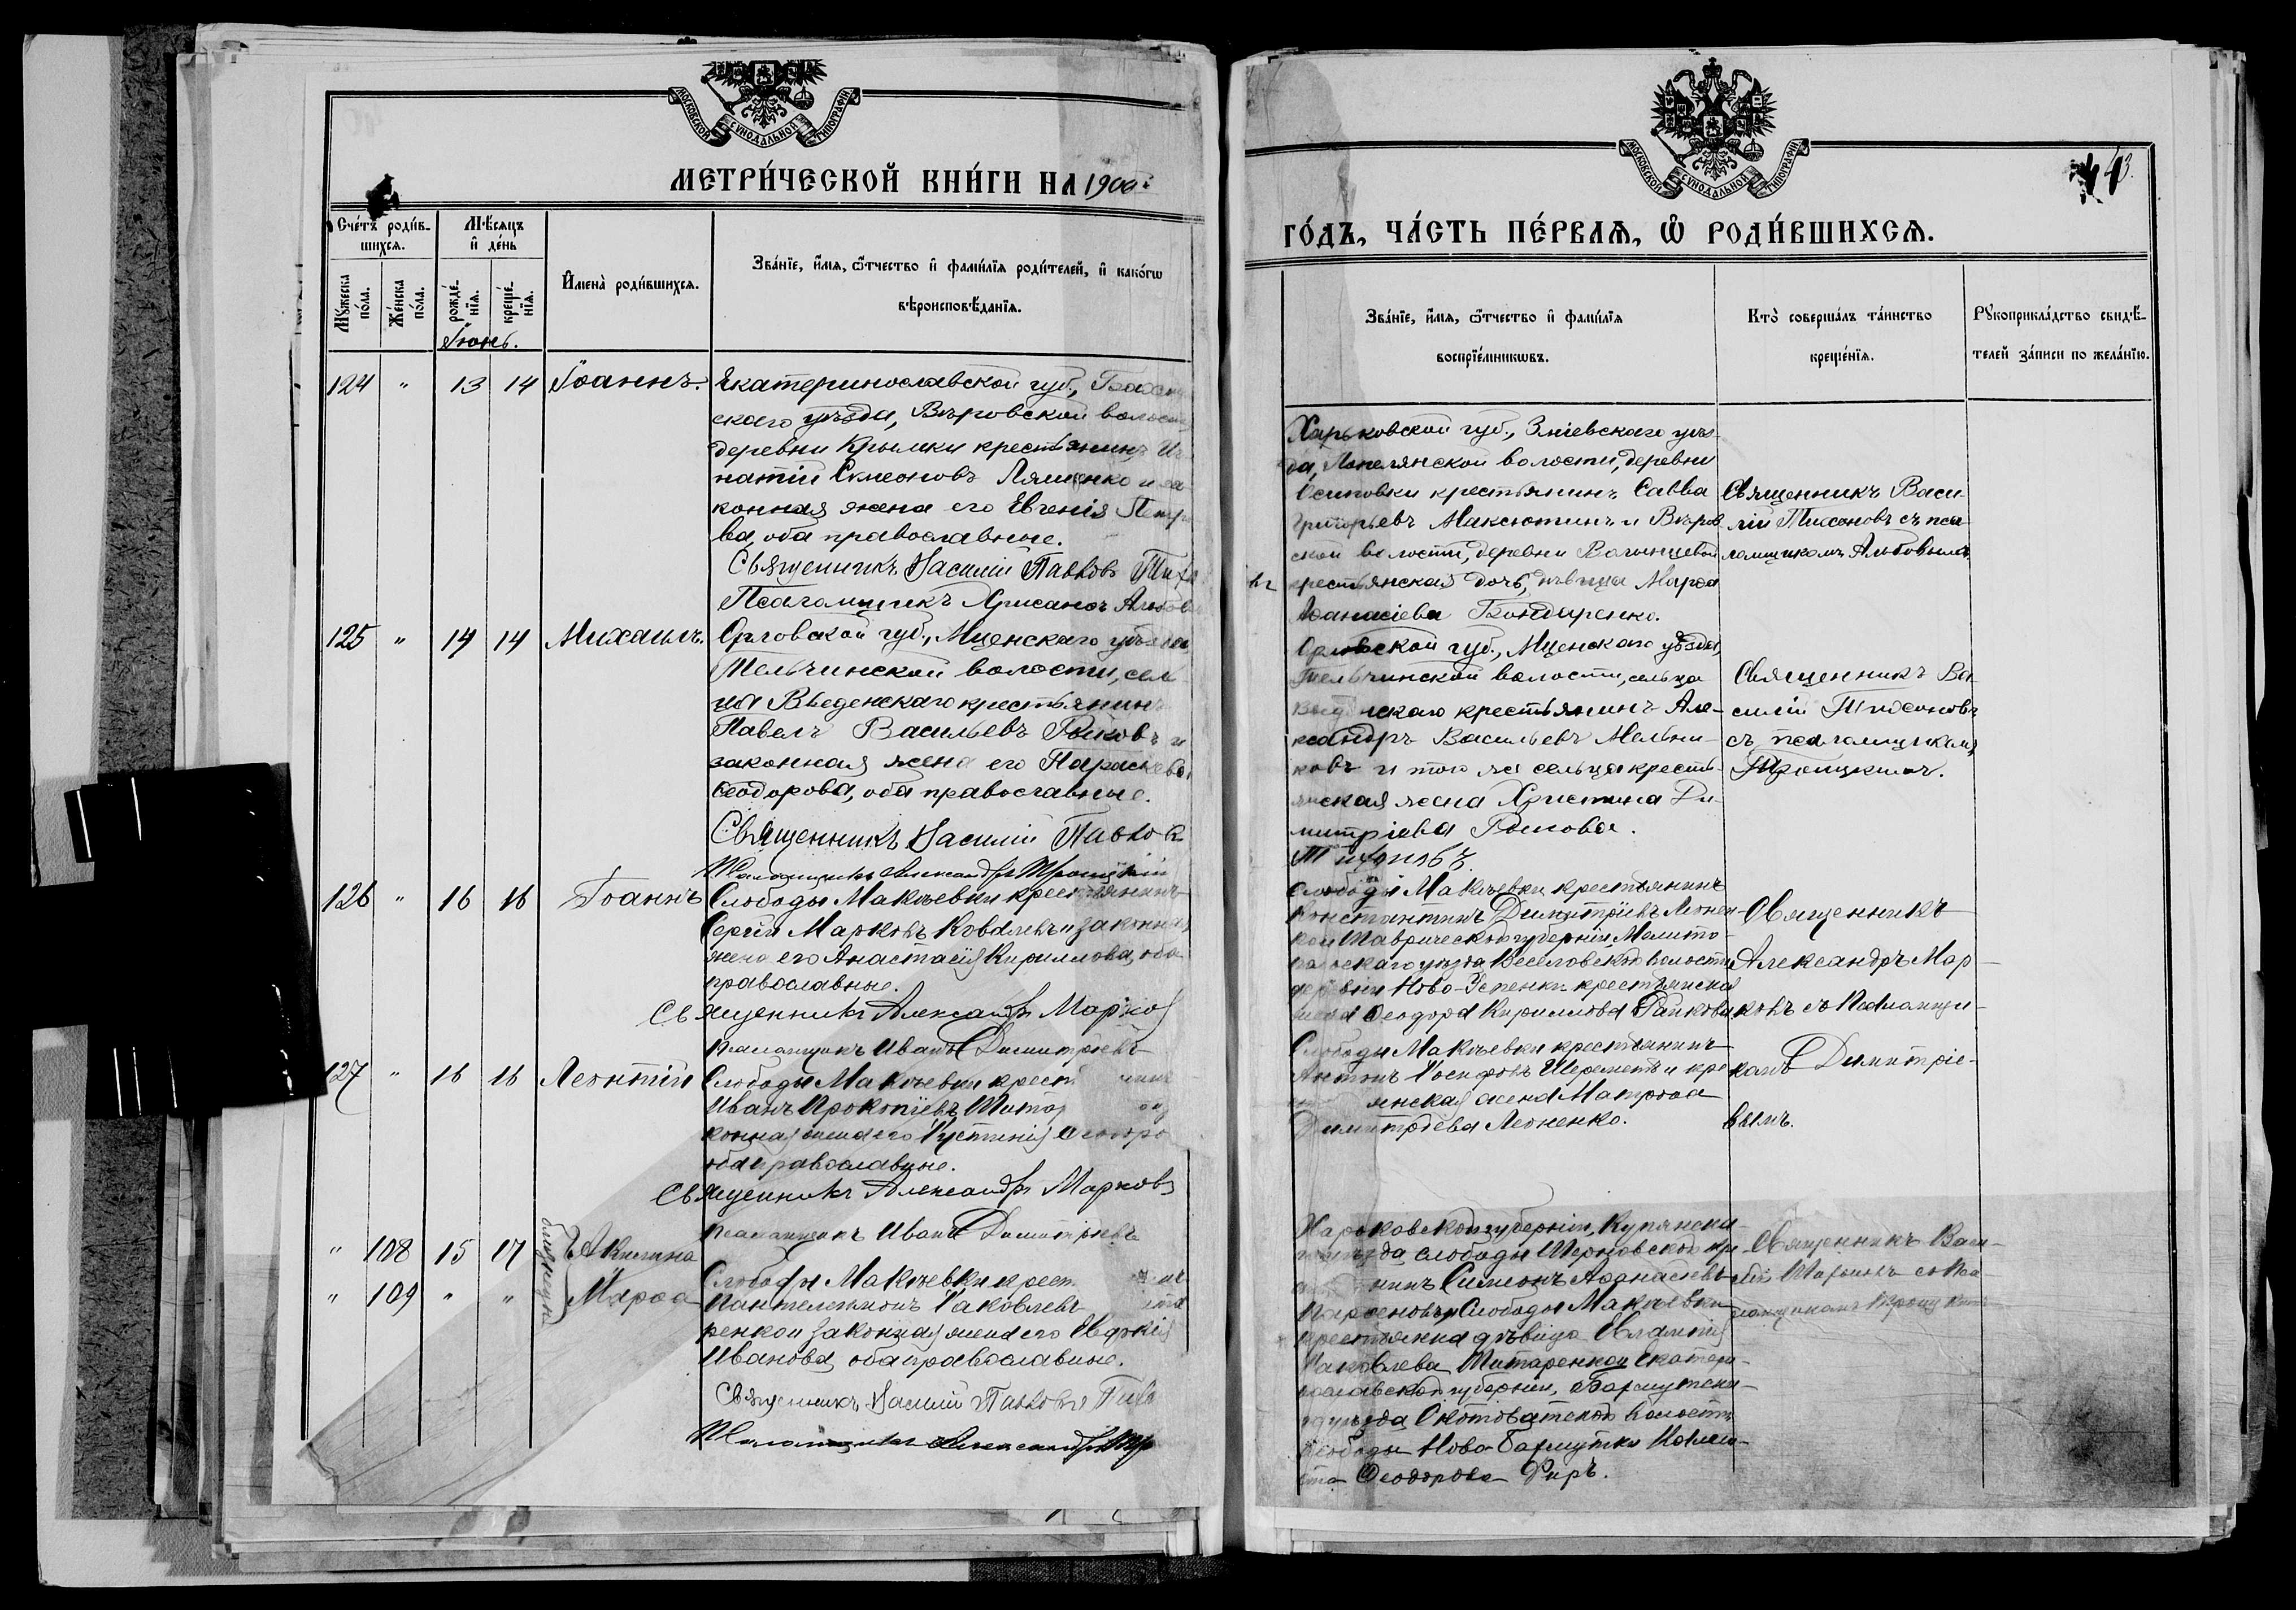 МОСКОВСКОЙ СѴНОДАЛЬНОЙ ТИПОГРАФІИ
МЕТРИ́ЧЕСКОЙ КНИ́ГИ НА 1900
Сче́тъ роди́в-
шихсѧ.
Мѣ́сѧцъ
и҆ де́нь
Мꙋ́жеска по́ла.
Же́нска по́ла.
рожде́-
нїѧ.
креще́-
нїѧ.
И҆мена̀ роди́вшихсѧ.
Зва́нїе, и҆́мѧ, ѻ҆́тчество и҆ фами́лїѧ роди́телей, и҆ како́гѡ
вѣроисповѣ́данїѧ.
Іюнь.
124 " 13 14 Іоаннъ. Екатеринославской губ.,
скаго уѣзда, Вѣровской волости
деревни Крынки крестьянинъ Иг
натій Симеоновъ Ляшенко и за
конная жена его Евгенія
ва, оба православные.
Священникъ Василій Павловъ
Псаломщикъ Хрисанѳъ
125 " 14 14 Михаилъ. Орловской губ., Мценскаго уѣзда
Тельчинской волости, сель
ца Введенскаго крестьянинъ
Павелъ Васильевъ и
законная жена его Параскева
Ѳеодорова, оба православные.
Священникъ Василій Павлов
Псаломщикъ Александръ Троицкій
126 " 16 16 Іоаннъ Слободы Макѣевки крестьянинъ
Сергій Марковъ Ковалевъ и законная
жена его Анастасія Кириллова, оба
православные.
Священникъ Александръ Марков
Псаломщикъ Иванъ Димитріевъ
127 " 16 16 Леонтій Слободы Макѣевки крест нинъ
Иванъ Прокопіевъ
конная жена его Іустинія Ѳеодоро
оба православные.
Священникъ Александръ Марковъ
Псаломщикъ Иванъ Димитріевъ
" 108 15 17 близнецы Акилина
" 109 " " Марѳа
Слободы Макѣевки крест
Пантелеимонъ Іаковлевъ
ренко и законная жена его Евдокія
Иванова, оба православные.
Священникъ Василій Павловъ
Псаломщикъ Александръ
МОСКОВСКОЙ СѴНОДАЛЬНОЙ ТИПОГРАФІИ
43.
ГО́ДЪ, ЧА́СТЬ ПЕ́РВАѦ, Ѽ РОДИ́ВШИХСѦ.
Зва́нїе, и҆́мѧ, ѻ҆́тчество и҆ фами́лїѧ
воспрїе́мникѡвъ.
Кто̀ соверша́лъ та́инство
креще́нїѧ.
Рꙋкоприкла́дство свидѣ́-
телей за́писи по жела́нїю.
Харьковской губ., Зміевскаго уѣз-
да, волости, деревни
Осиповки крестьянинъ Савва
Григорьевъ Максютинъ и Вѣров
ской волости, деревни
крестьянская дочь, дѣвица Марѳа
Аѳанасіева Бондаренко.
Священникъ Васи-
лій Тихоновъ съ пса-
ломщикомъ
Орловской губ., Мценскаго уѣзда,
Тельчинской волости, сельца
Введенскаго крестьянинъ Але-
ксандръ Васильевъ Мельни-
ковъ и того же сельца кресть-
янская жена Христина Ди-
митріева
Тихоновъ
Священникъ Ва-
силій Тихоновъ
съ псаломщикомъ
Троицкимъ.
Слободы Макѣевки крестьянинъ
Константинъ Димитріевъ Леонен-
ко и Таврической губерніи, Мелито-
польскаго уѣзда Веселовской волости
деревни Ново-Успенки крестьянская
жена Ѳеодора Кириллова
Слободы Макѣевки крестьянинъ
Антонъ Іосифовъ Шереметъ и кре
янская жена Матрона
Димитріева Леоненко.
Священникъ
Александръ Мар-
ковъ съ Псаломщи-
комъ Димитріе-
вымъ.
Харьковской губерніи, Купянска-
го уѣзда слободы кре
нинъ Симеонъ Аѳанасіевъ
Парѳеновъ и Слободы Макѣевки
крестьянка дѣвица Евлампія
Іаковлева Титаренко и Екатери-
нославской губерніи, Бахмутска-
го уѣзда Скотоватской волости
слободы Ново-Бахмутки
Ѳеодорова
Священникъ Васи-
лій съ Пса-
ломщикомъ